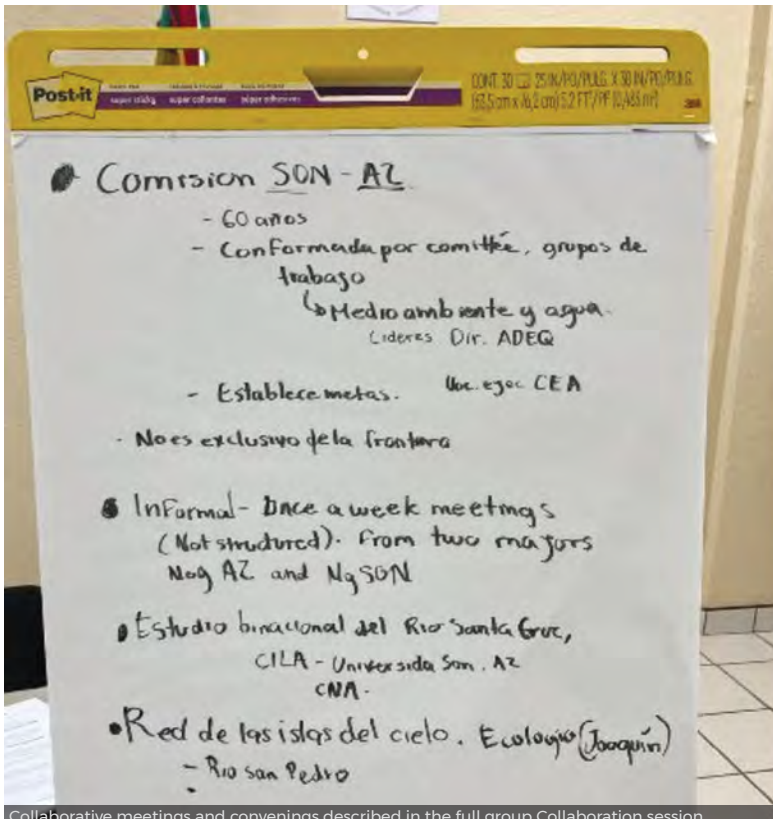 Post-it
super sticky super collantes súper adhesivas
CONT. 30 25 IN/PO/PULG. X 30 IN/PO/PULG.
(63,5 cm x 76,2 cm) 5.2 FT²/PI² (0,483 m²)
3M
Comision SON - AZ
- 60 años
- Conformada por comittée, grupos de
trabajo
Medio ambiente y agua.
Lideres Dir. ADEQ
- Establece metas. Voc. ejec CEA
- No es exclusivo de la frontera
Informal - Once a week meetings
(Not structured). From two majors
Nog AZ and Ng SON
Estudio binacional del Rio Santa Cruz,
CILA - Universida Son. AZ
CNA.
Red de las islas del cielo. Ecologia (Joaquín)
- Rio San Pedro
Collaborative meetings and convenings described in the full group Collaboration session